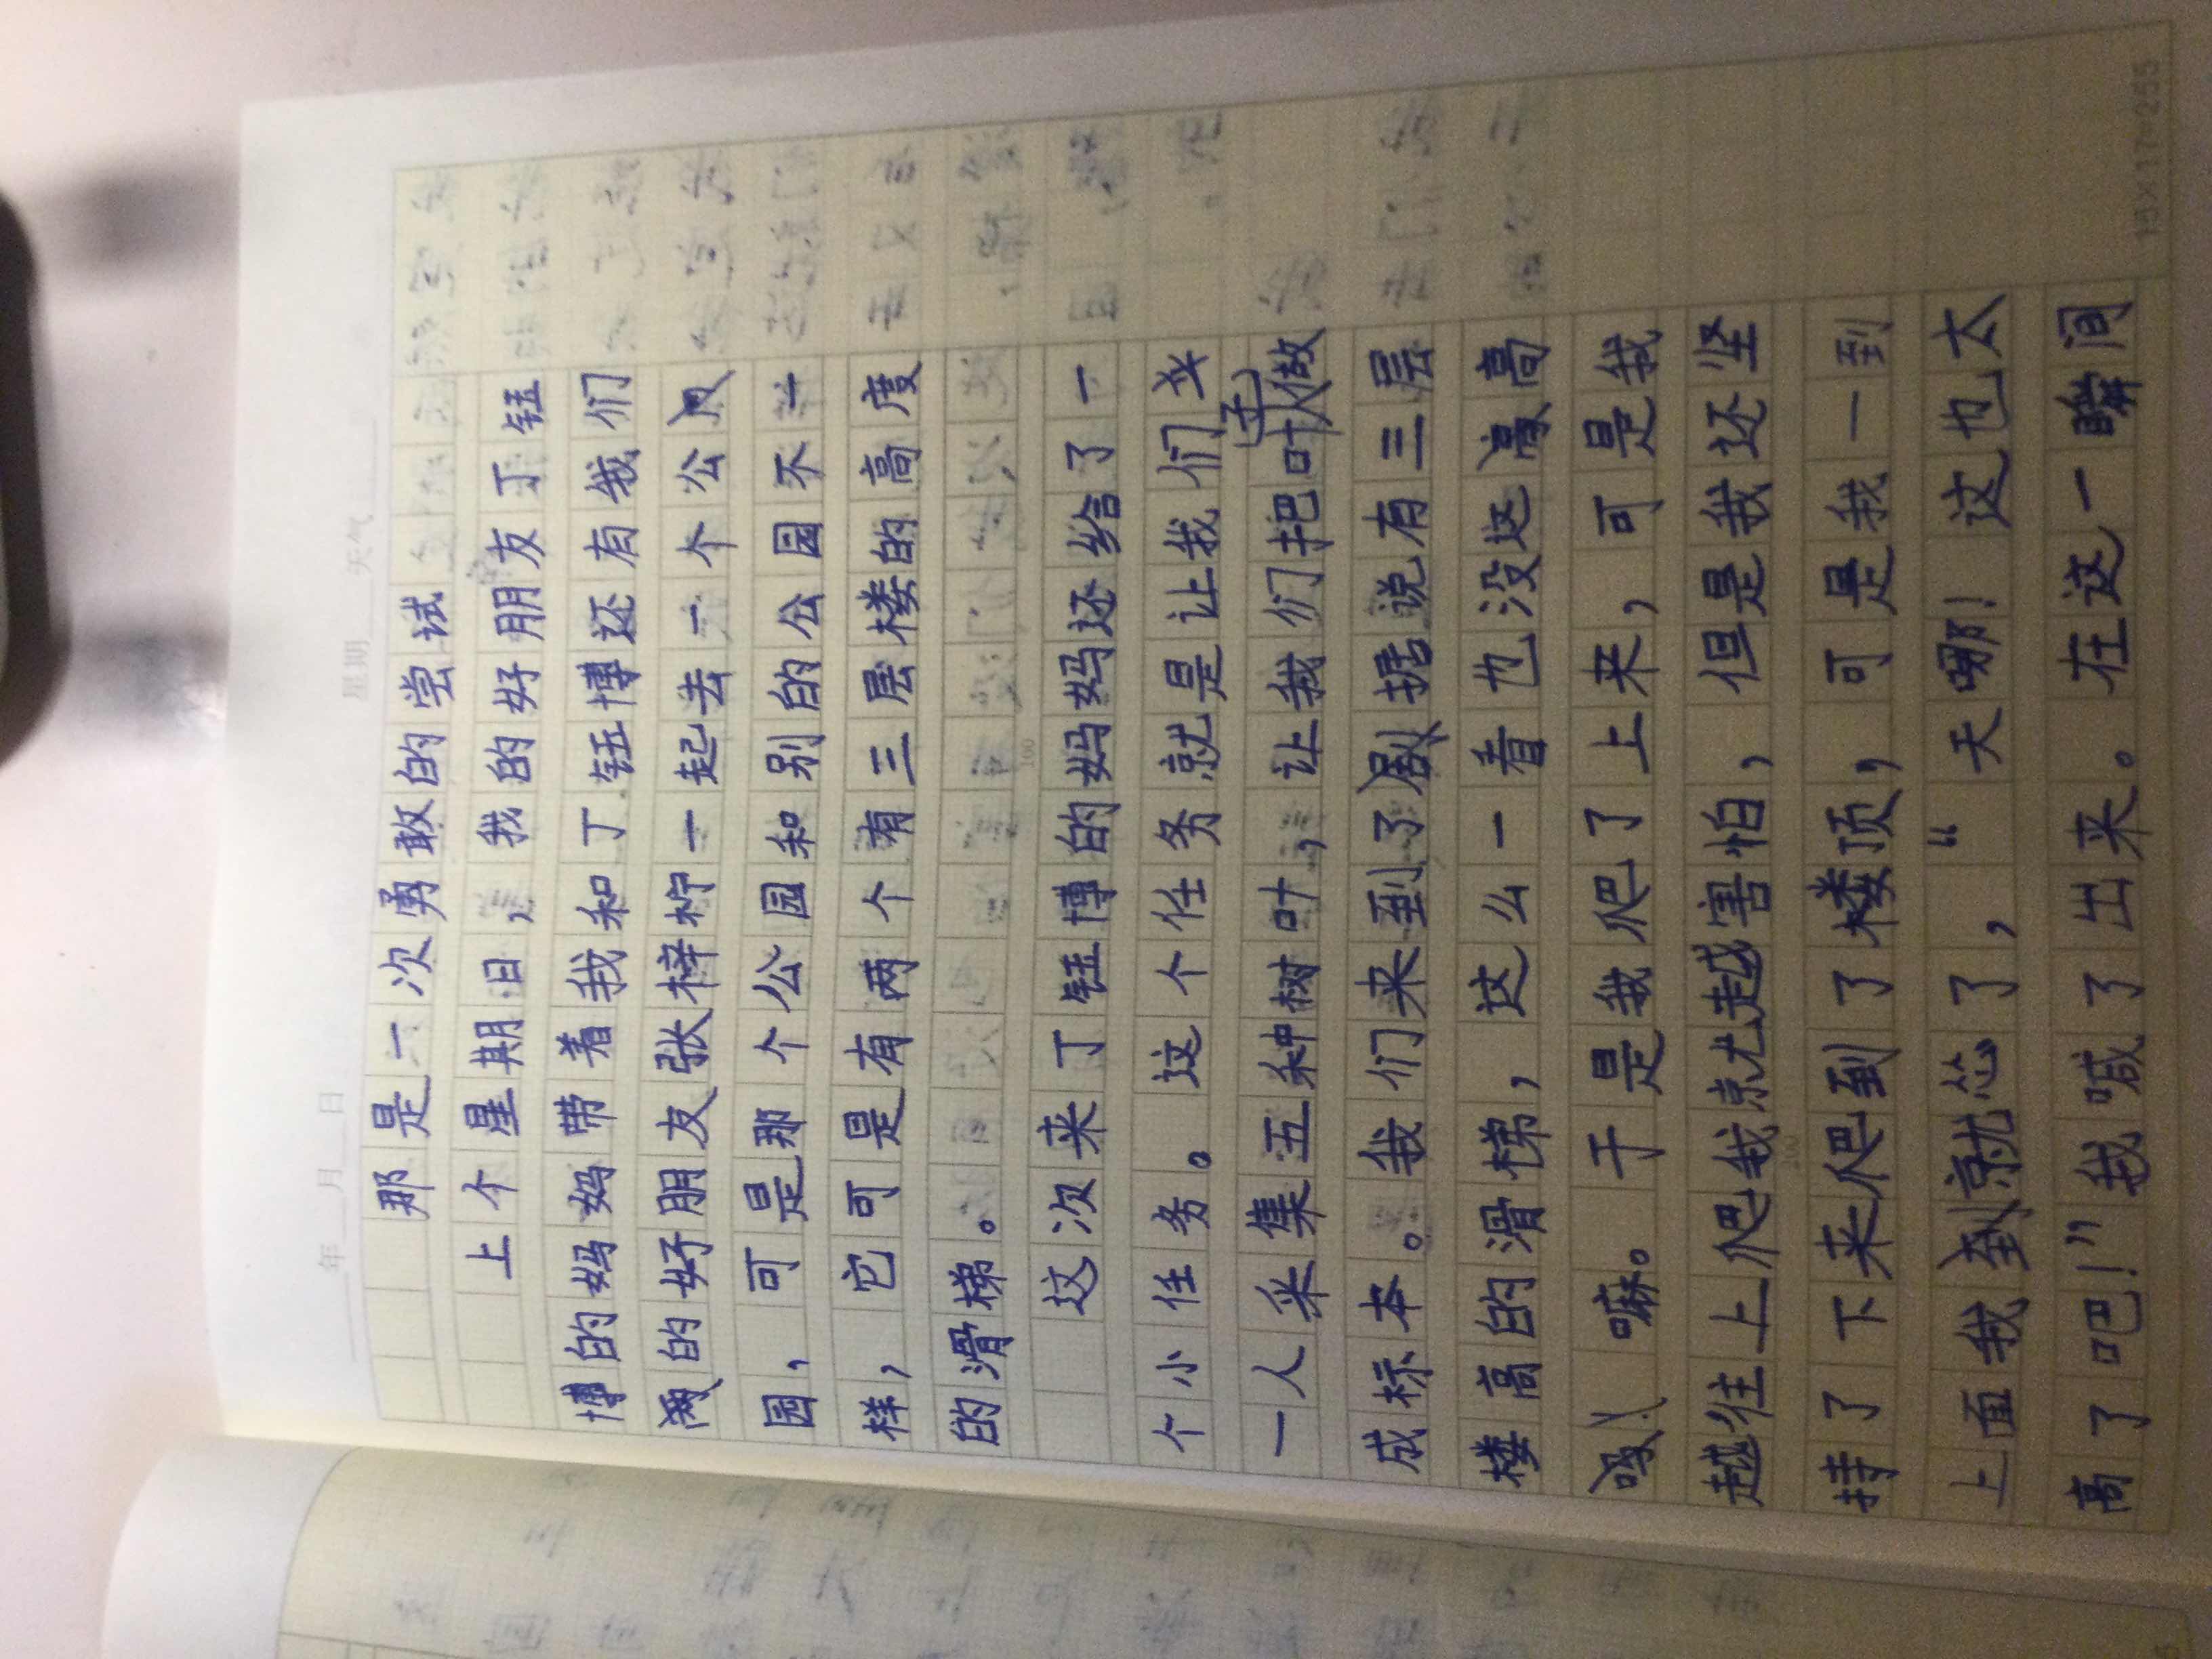 年 月 日 星期 天气
那是一次勇敢的尝试
上个星期日，我的好朋友丁钰
博的妈妈带着我和丁钰博还有我们
的好朋友张梓柠一起去一个公
园，可是那个公园和别的公园不一
样，它可是有两个有三层楼的高度
的滑梯。
这次来丁钰博的妈妈还给了一
个小任务。这个任务就是让我们
一人采集五种树叶，让我们把叶子做
成标本。我们来到了据说有三层
楼高的滑梯，这么一看也没这高
嘛。于是我爬了上来，可是我
越往上爬我就越害怕，但是我还坚
持了下来爬到了楼顶，可是我一到
上面我就怂了，“天哪！这也太
高了吧！”我喊了出来。在这一瞬间
15×17=255